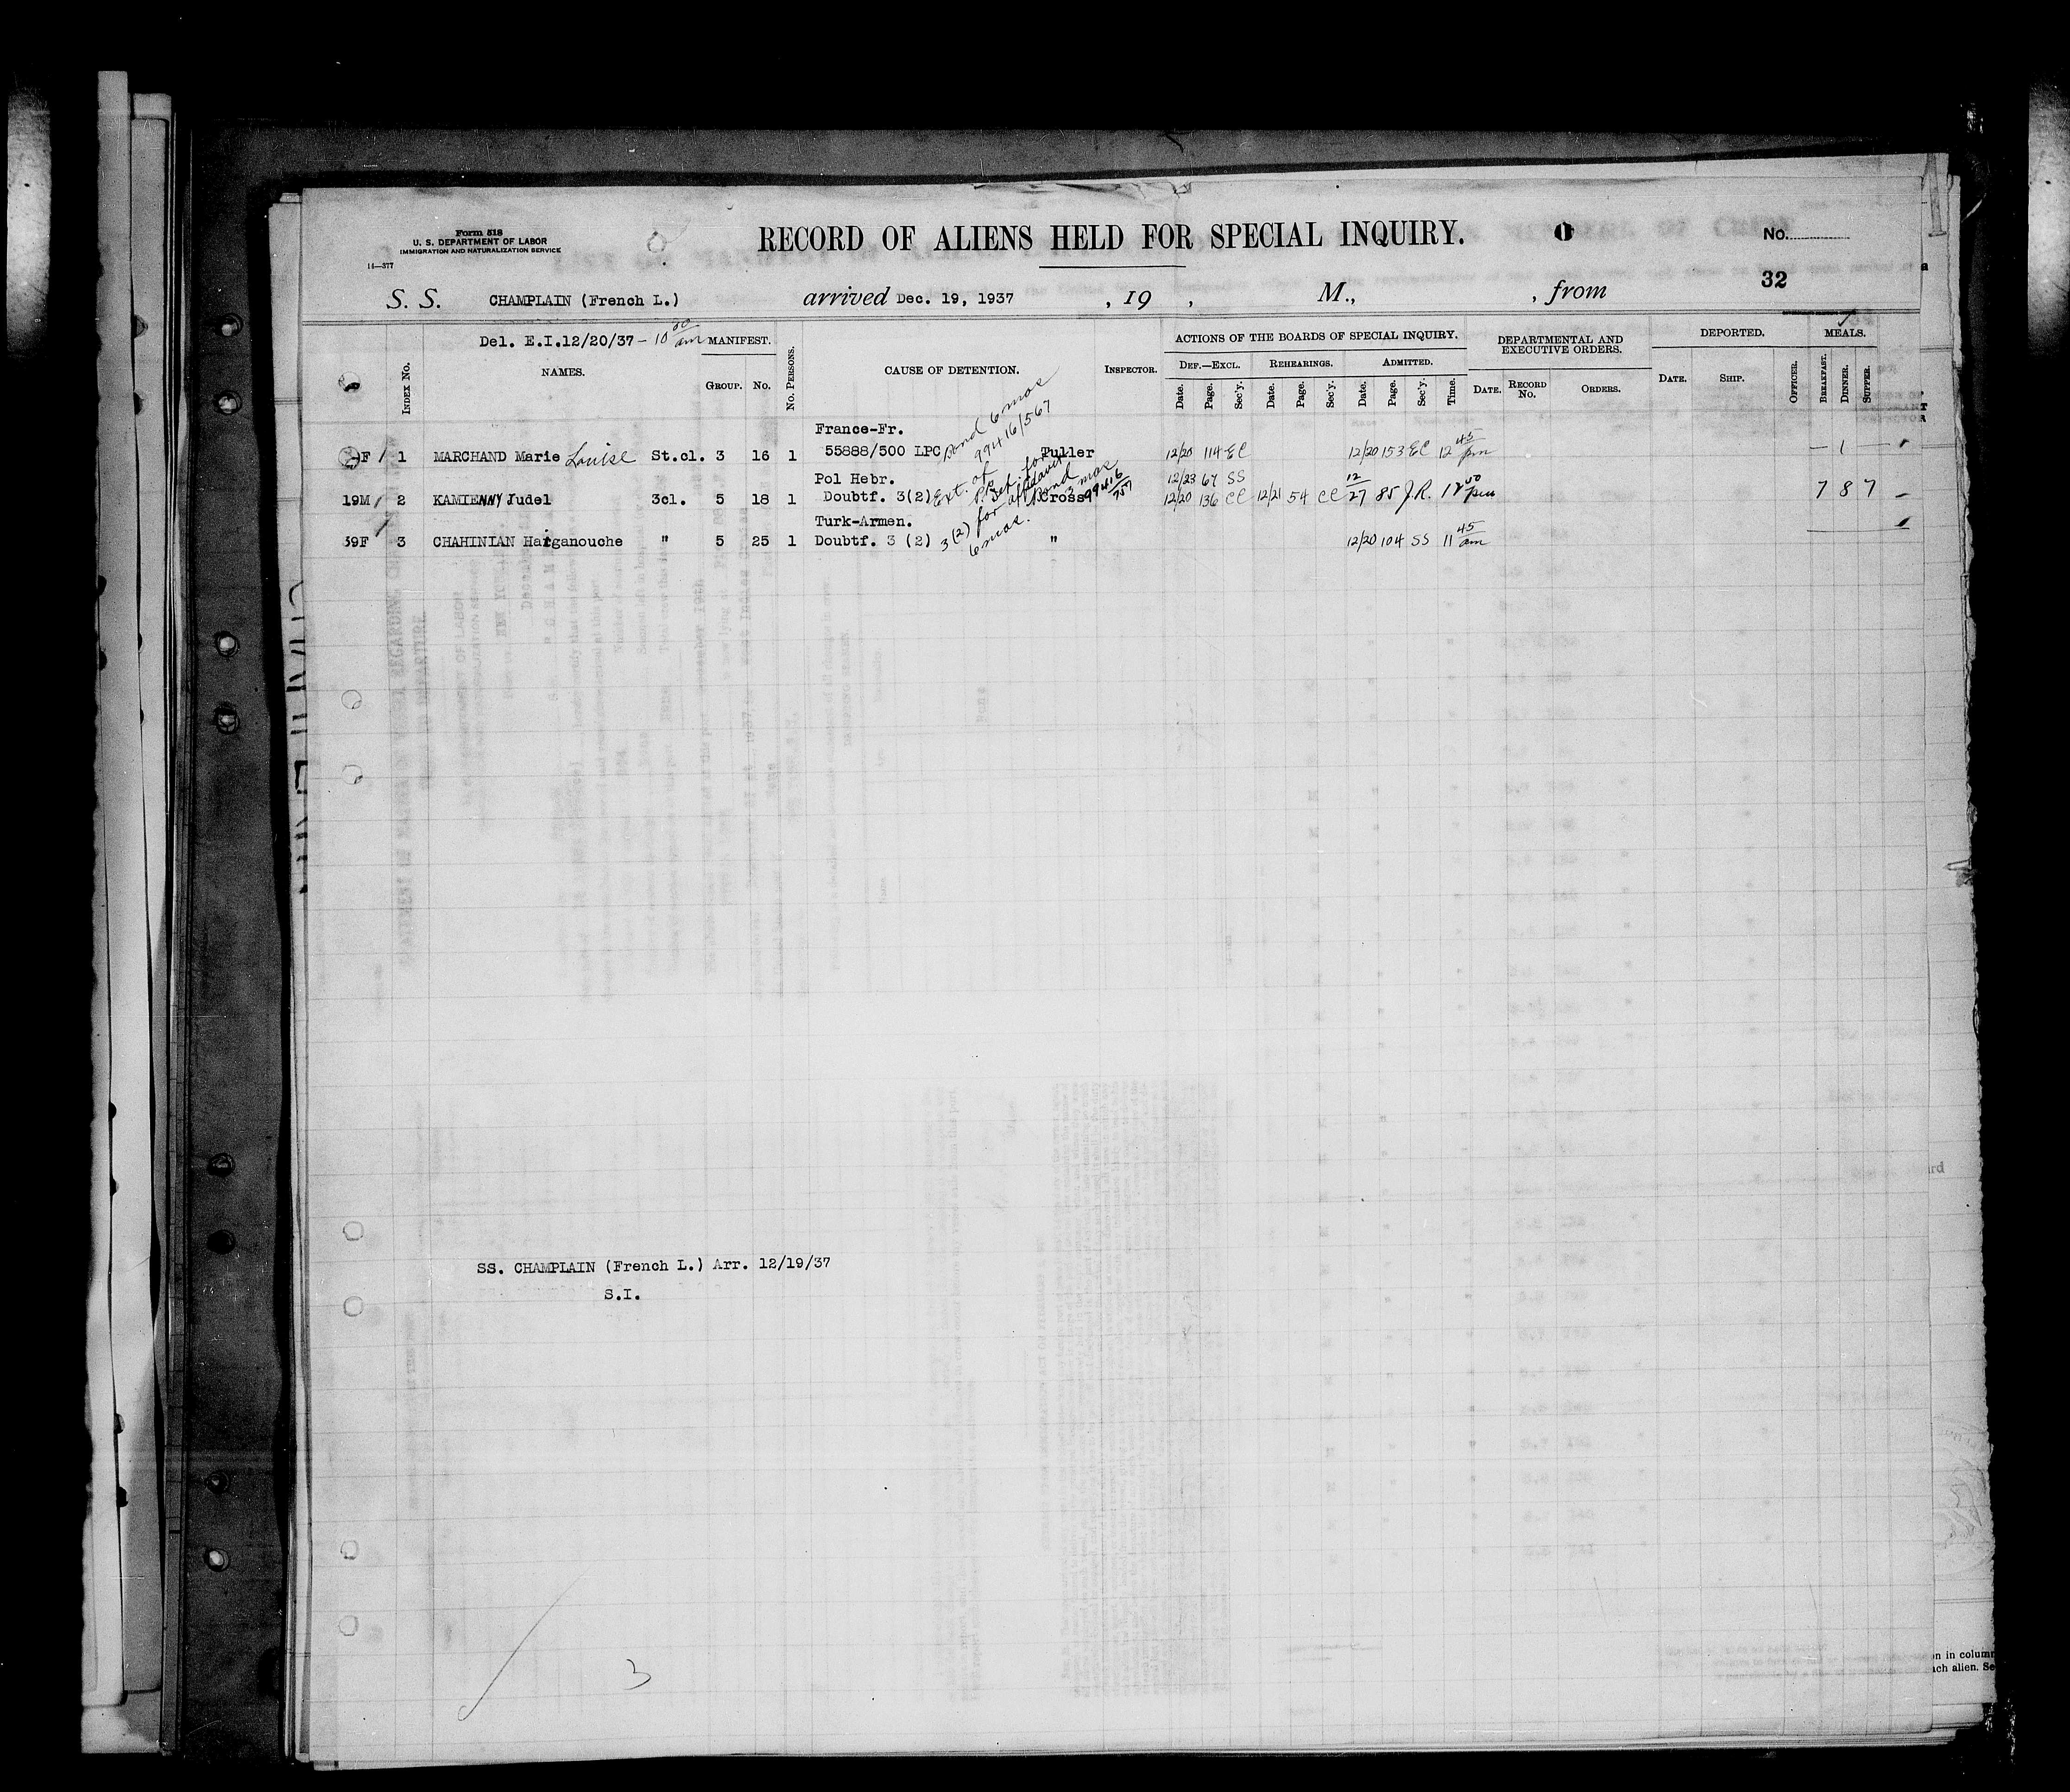 Form 518
U. S. DEPARTMENT OF LABOR
IMMIGRATION AND NATURALIZATION SERVICE
14—377
RECORD OF ALIENS HELD FOR SPECIAL INQUIRY.
No.
32
S. S. CHAMPLAIN (French L.) arrived Dec. 19, 1937, 19 , M., , from
Del. E.I.12/20/37 - 10 30 am
INDEX NO. NAMES. MANIFEST. GROUP. NO. NO. PERSONS. CAUSE OF DETENTION. INSPECTOR.
ACTIONS OF THE BOARDS OF SPECIAL INQUIRY.
DEF.—EXCL. REHEARINGS. ADMITTED.
Date. Page. Sec'y. Date. Page. Sec'y. Date. Page. Sec'y. Time.
DEPARTMENTAL AND EXECUTIVE ORDERS.
DATE. RECORD NO. ORDERS.
DEPORTED.
DATE. SHIP. OFFICER.
MEALS.
BREAKFAST. DINNER. SUPPER.
France-Fr.
F 1 MARCHAND Marie Louise St.cl. 3 16 1 55888/500 LPC Bond 6 mos 99416/567 Tuller 12/20 114 EC 12/20 153 EC 12 45 pm — 1 —
Pol Hebr. 12/23 67 SS
19M 2 KAMIENNY Judel 3cl. 5 18 1 Doubtf. 3(2) Ext. of Def. for affidavit Bond 3 mos 99416/757 Cross 12/20 136 CC 12/21 54 CC 12/27 85 J.R. 12 00 pm 7 8 7
Turk-Armen.
39F 3 CHAHINIAN Harganouche " 5 25 1 Doubtf. 3 (2) 3(2) for 6 mos. " 12/20 104 SS 11 45 am
SS. CHAMPLAIN (French L.) Arr. 12/19/37
S.I.
3